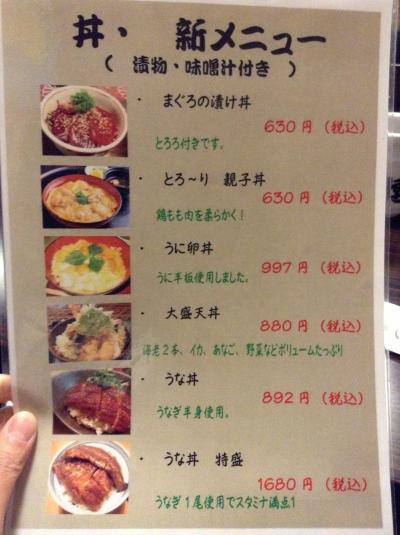 丼・ 新メニュー
( 漬物・味噌汁付き )
・ まぐろの漬け丼
630円(税込)
とろろ付きです。
・ とろ~り 親子丼
630円(税込)
鶏もも肉を柔らかく!
・ うに卵丼
997円(税込)
うに半板使用しました。
・ 大盛天丼
880円(税込)
海老2本、イカ、あなご、野菜などボリュームたっぷり
・ うな丼
892円(税込)
うなぎ半身使用。
・ うな丼 特盛
1680円(税込)
うなぎ1尾使用でスタミナ満点!